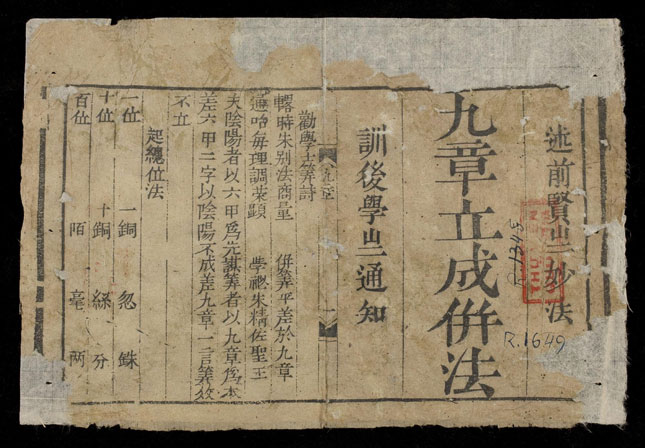 述前賢㞢妙法
九章立成併法
訓後學㞢通知
勸學士筭詩
時朱別法商量 併筭平差於九章
通 每理調荣顕 學 朱精佐聖王
夫陰陽者以六甲爲先講筭者以九章爲本
差六甲二字以陰陽不成差九章一言筭效
不立
起總位法
一位 一銅 忽 銖
十位 十銅 絲 分
百位 陌 毫 两
R.1649